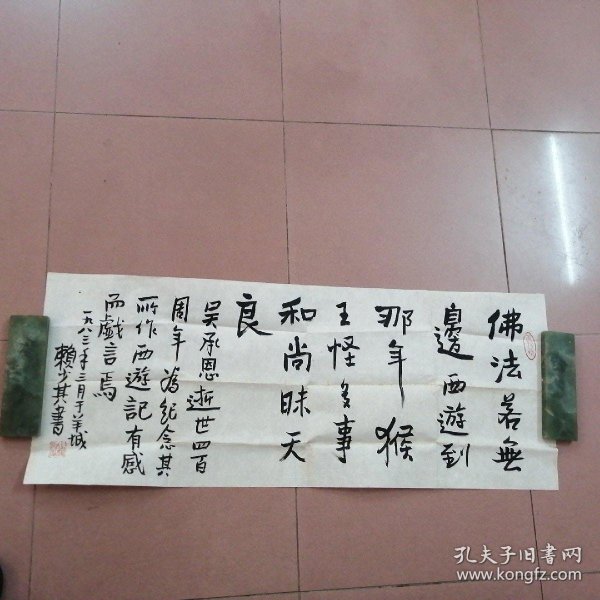 佛法若無
邊西遊到
那年猴
王怪多事
和尚昧天
良
吴承恩逝世四百
周年為紀念其
所作西遊記有感
而戲言焉
一九八三年三月于羊城
賴少其書
孔夫子旧书网
www.kongfz.com